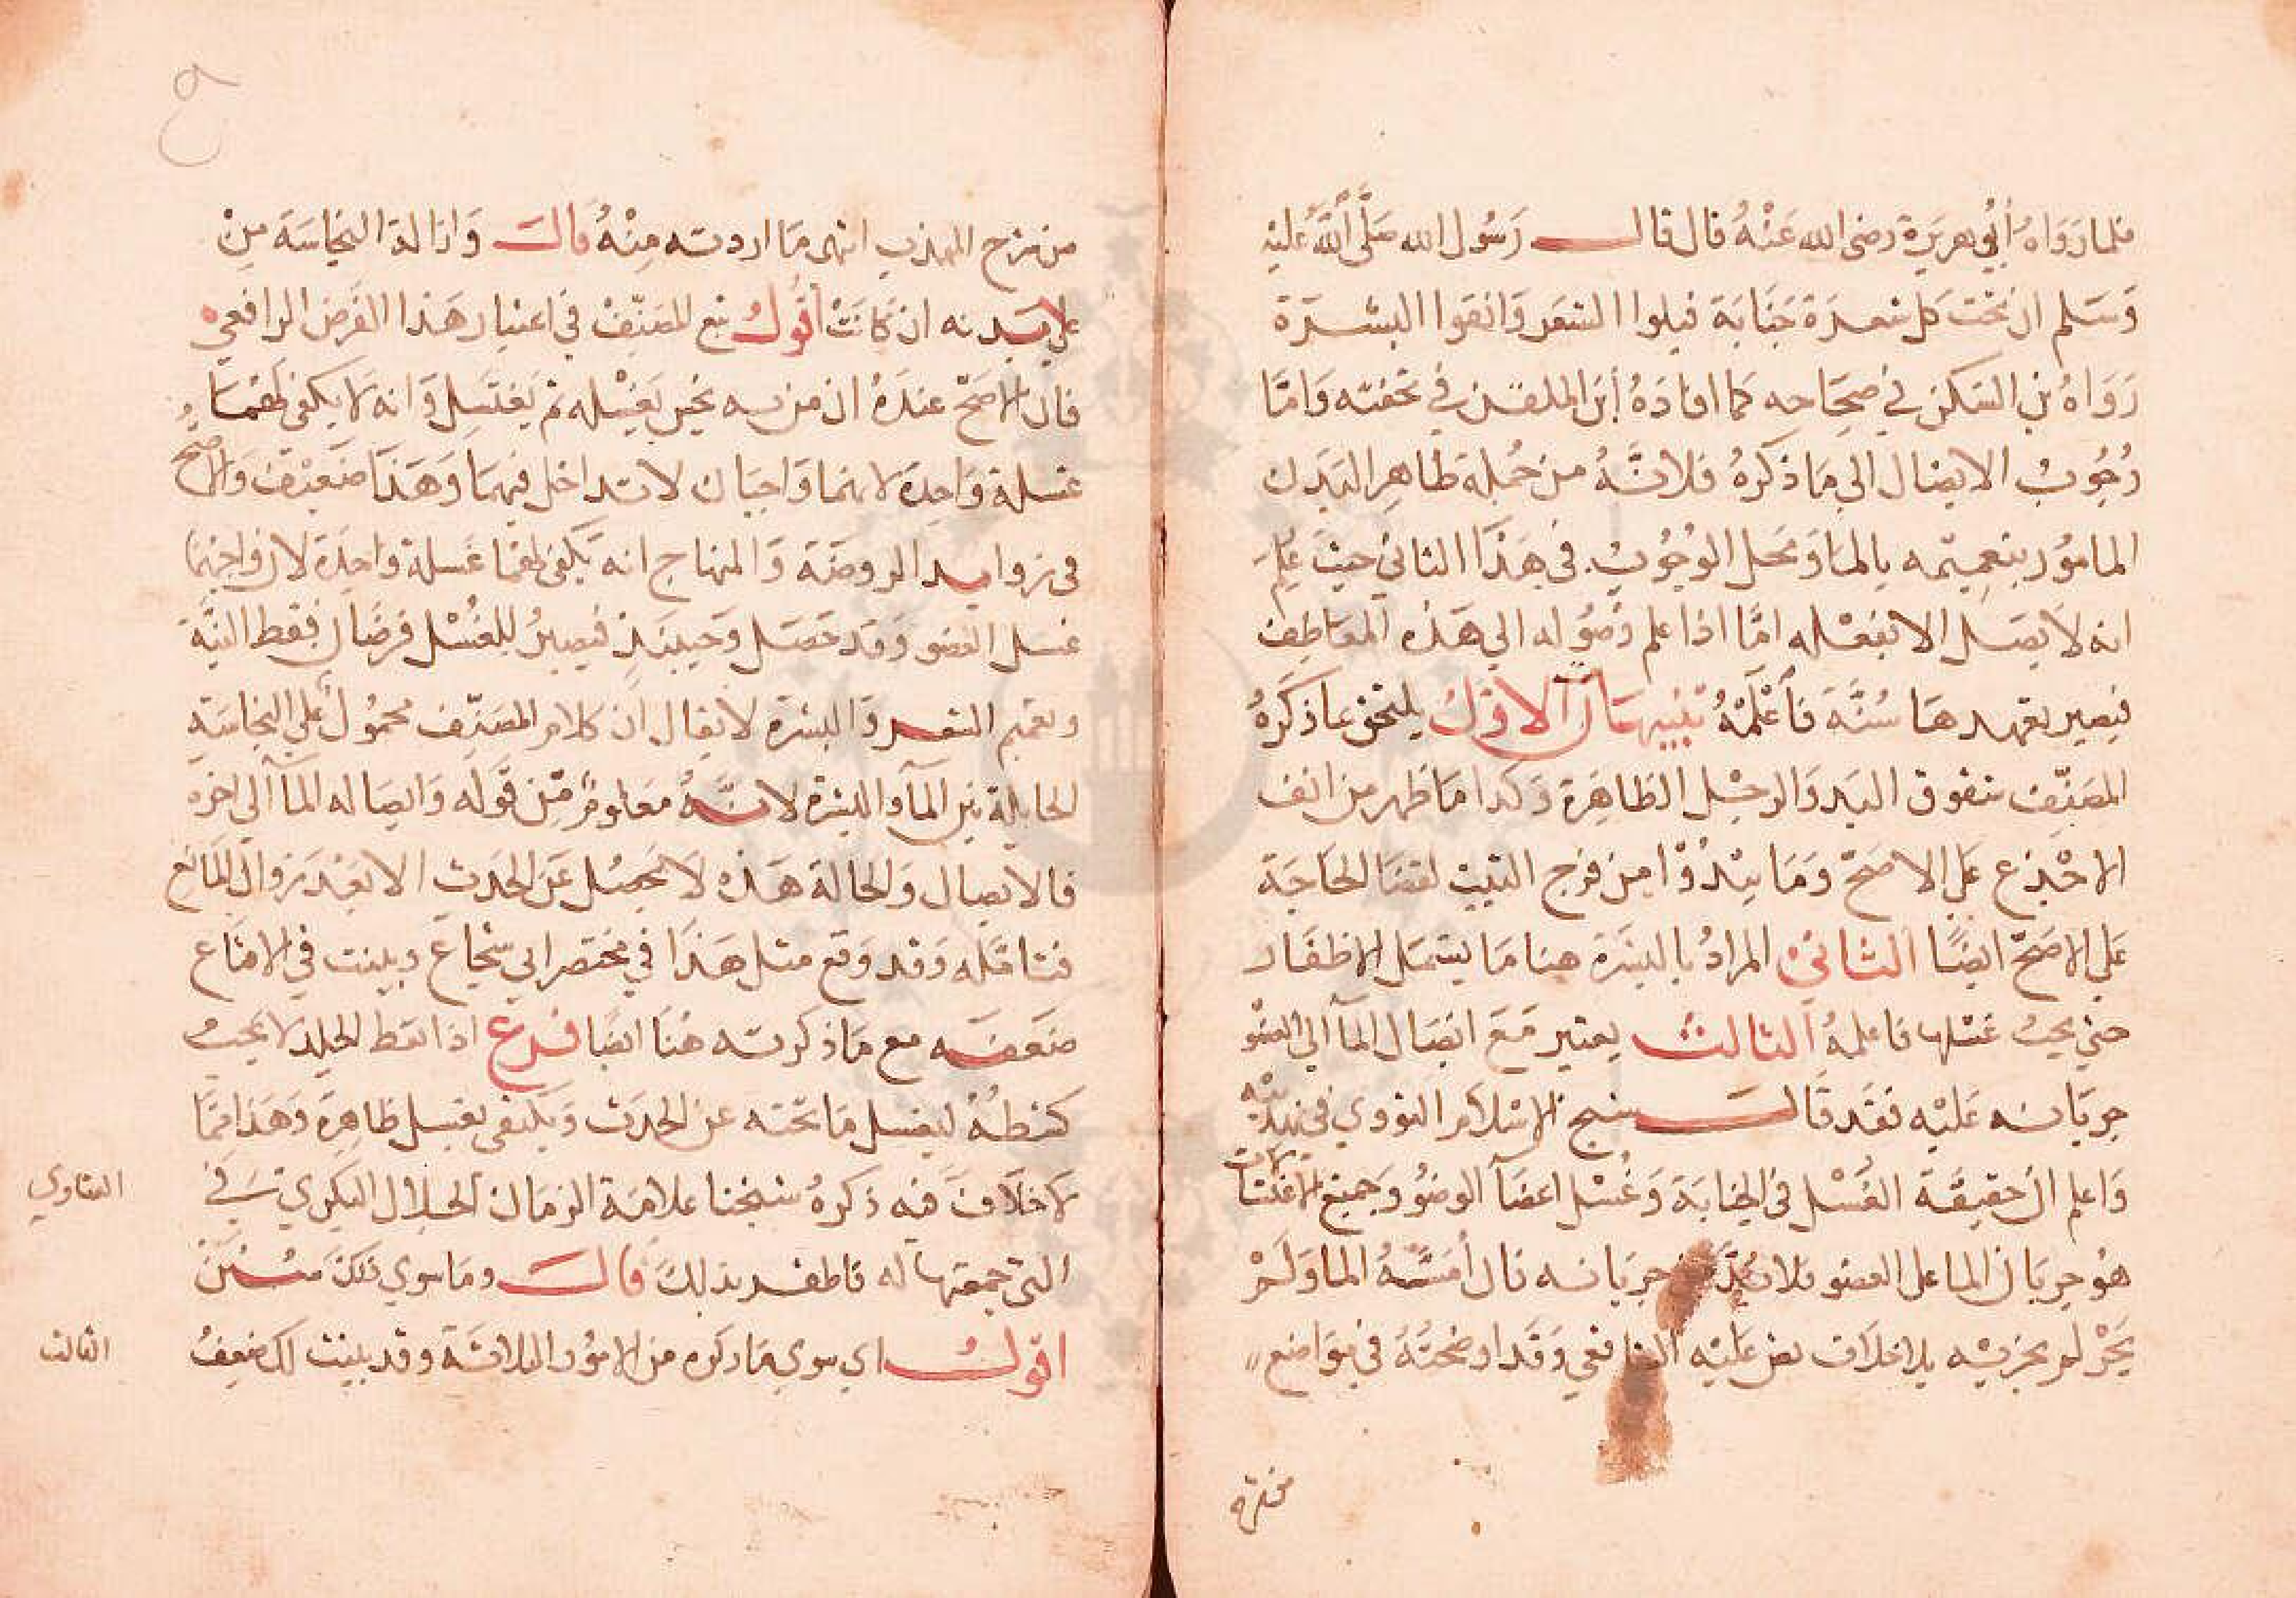 فلما رَوَاهُ أبُي هريَرة رضى الله عَنْهُ قال قال رَسُول الله صَلَّى اللَّهُ عليْه
وَسَلم ان تحْت كل شعرَة جَنَابَة فبلوا الشعَر وَانقوا البشرَة
رَوَاهُ بن السَكن في صحِاحِه كما افادَهُ ابن الملقن في تحفته وَامَّا
وُجُوبُ الايصَال الي مَا ذكرهُ فلانَّهُ من جُملة ظاهِر البَدن
المامُوْر بتعميمه بالما وَمحَل الوجُوبْ في هَذا الثاني حيث علم
انه لا يصَل الا بفعْله امَّا اذا علم وُصُوله الي هَذه المعَاطِف
فيصير تعَهدهَا سُنَّة فأعْلَمْهُ تنبيهَان الاوّلُ يلتحق بما ذكرهُ
المصَنِّف شقوق اليَد وَالرجْل الظاهِرَة وَكذا مَا ظهر من انف
الاجْدع عَلي الاصَحّ وَمَا يبْدُوْا مِن فرْج الثيّب لقضَا الحَاجَة
عَلي الاصَحّ ايضًا الثانى المرادُ بالبشرَة هنا مَا يشمَل الاظفَار
حتي يجبُ غسْلها فاعلمهُ الثالث يعتبر مَعَ ايصَال المآ الي العضْو
جرَيَانه عَليْه فقَد قَالَ شيخ الاسْلام النووي في تهذيْبه
وَاعلم انّ حقيقَة الغُسْل في الجنابَة وَغُسْل اعضَآ الوضوُ وَجميع الاغتسَالات
هوُ جرَيَان الما على العضو فلا بُدَّ من جرَيَانه قال أمَسَّهُ الما وَلَمْ
يَجْر لم يجزيْه بلا خلاف نص عَليْه الشافعي وَقَد اوضحْتُهُ في موَاضع
من شرح المهذب انتهى مَا اردته مِنْهُ قالَ وَازالة النجَاسَة مِنْ
على بدنه ان كانَتْ أقولُ تبع المصَنّفْ في اعتبار هَذا الفَرض الرافعي
فان الاصَحّ عندَهُ ان من به نجس يَغسْله ثم يَغتَسِل وَانه لا يكفي لهُمَا
غسلة وَاحِدَة لانهما وَاجبَان لا تداخل فيهمَا وَهَذا ضَعيْف وَالاصَحّ
في زوايد الروضَة وَالمنهاج انه يَكفي لهُمَا غَسلة واحِدَة لان وَاجبهُمَا
غسل العضو وَقد حَصَل وَحينيَذٍ فيَصيرُ للغُسْل فرضَان فقط النيّة
وتعميم الشعر وَالبشرة لا يقال ان كلام المصَنّف محمُولٌ عَلي النجاسَة
الحايلة بَين المآ والبشرة لانَّهُ معَلومٌ مِّن قوَله وَايصَاله المآ الي اخره
فالايصال وَالحالة هَذه لَا يَحصُل عَن الحَدث الا بَعْد زوَال المانع
فتامَّله وَقد وَقع مثل هَذا في مختصر ابي شجَاع وبينت في الاقناع
ضَعفَه مع مَا ذكرته هُنَا ايضًا فرع اذا نقط الجلد لا يَجبُ
كشطهُ ليغسل مَا تحته عن الحدَث وَيكتفى بغَسل ظاهِرهَ وَهَذا ممَّا
لا خلافَ فيه ذكرهُ شيخنا علامَة الزمَان الجلال البكري سَ في
الفتاوي
التي جمعتها له فاظفر بذلكَ قالَ وَمَا سوي ذَلكَ سُنَنْ
اقولُ اي سوي مَا ذكره من الامُوْر الثلاثَة وَقد بينت لك ضعِفُ
الثالث